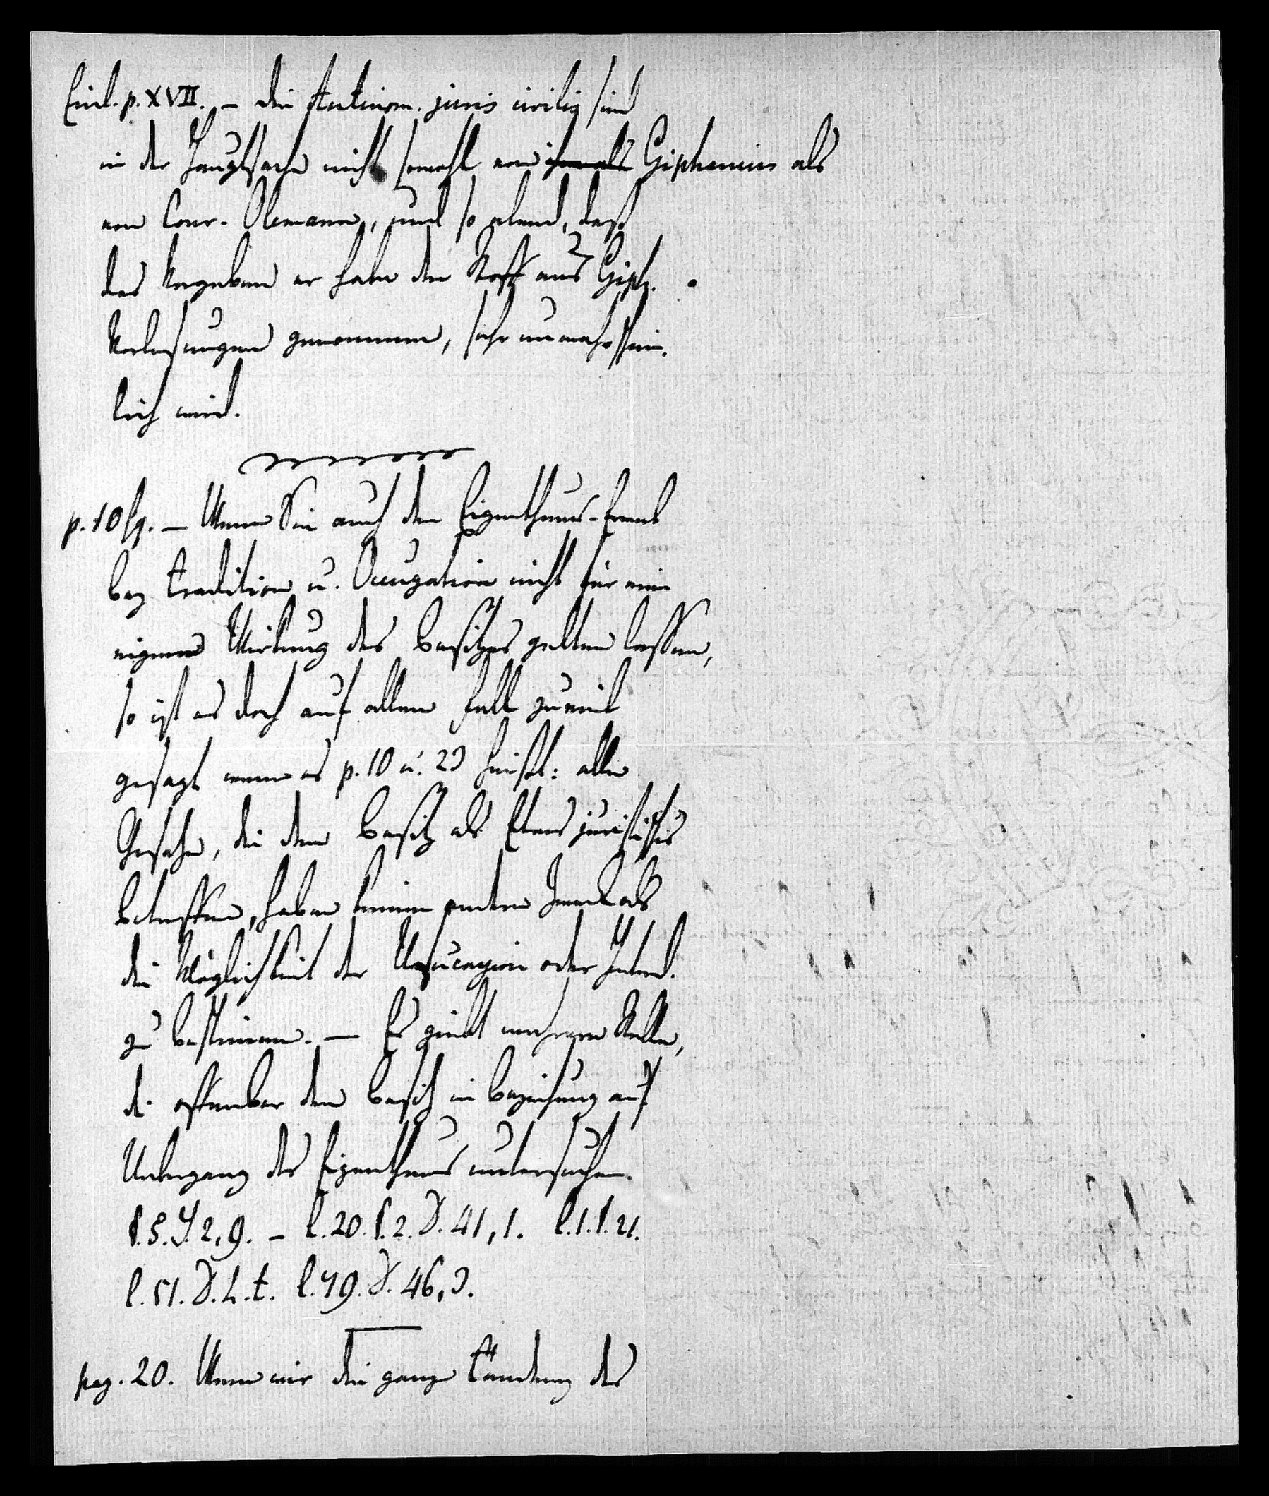 Einl. p. XVII. – die Antinom. juris civilis sind
in der Hauptsache nicht sowohl von Giphanius als
von Conr. Olemann, und so elend, daß
das Vorgeben er habe den Stoff aus Giph.
Vorlesungen genommen, sehr unwahrschein-
lich wird.
p. 10 sq. – Wenn Sie auch den Eigenthums-Erwerb
bey Tradition u. Occupation nicht für eine
eigene Wirkung des Besitzes gelten lassen,
so ist es doch auf allen Fall zuviel
gesagt wenn es p. 10 u. 23 heißt: alle
Gesetze, die den Besitz als etwas juristisches
betreffen, haben keinen andern Zweck als
die Möglichkeit der Usucapion oder Interd.
zu bestimmen. – Es giebt mehrere Stellen,
die offenbar den Besitz in Beziehung auf
Uebergang des Eigenthums untersuchen.
§. 5. J. 2, 9. – l. 20. §. 2. D. 41, 1. l. 1. §. 21.
l. 51. D. h. t. l. 79. D. 46, 3.
pag. 20. Wenn wir die ganze des